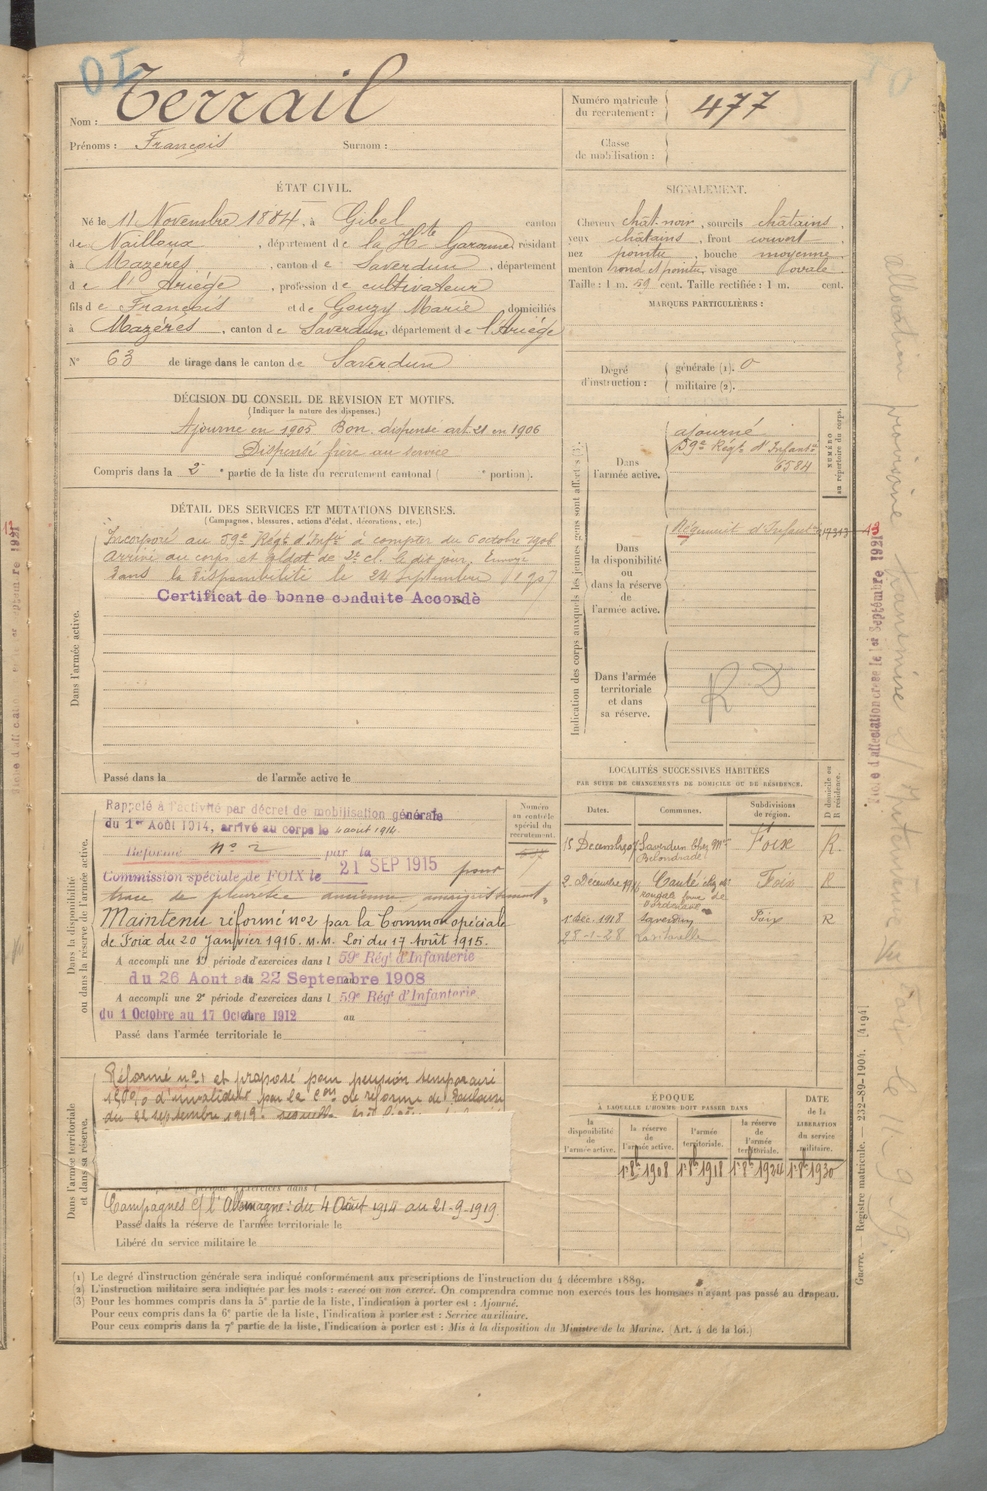 Nom : Terrail
Prénoms : François Surnom :
Numéro matricule du recrutement : 477
Classe de mobilisation :
ÉTAT CIVIL.
Né le 11 Novembre 1884, à Gibel canton
de Nailloux, département de la Hte Garonne, résidant
à Mazères, canton de Saverdun, département
de l'Ariège, profession de cultivateur
fils de François et de Gouzy Marie, domiciliés
à Mazères, canton de Saverdun, département de l'Ariège
N° 63 de tirage dans le canton de Saverdun
SIGNALEMENT.
Cheveux chât. noir, sourcils châtains,
yeux châtains, front couvert
nez pointu, bouche moyenne
menton rond et pointu, visage ovale.
Taille : 1 m. 59 cent. Taille rectifiée : 1 m. cent.
MARQUES PARTICULIÈRES :
Degré d'instruction : générale (1). 0
militaire (2).
DÉCISION DU CONSEIL DE REVISION ET MOTIFS.
(Indiquer la nature des dispenses.)
Ajourné en 1905 Bon. dispensé art. 21 en 1906
Dispensé frère au service
Compris dans la 2e partie de la liste du recrutement cantonal ( e portion).
DÉTAIL DES SERVICES ET MUTATIONS DIVERSES.
(Campagnes, blessures, actions d'éclat, décorations, etc.)
Dans l'armée active.
Incorporé au 59e Régt d'Infie à compter du 6 octobre 1906
Arrivé au corps et soldat de 2e cl. le dit jour. Envoyé
dans la disponibilité le 24 Septembre 1907
Certificat de bonne conduite Accordé
Passé dans la de l'armée active le
Indication des corps auxquels les jeunes gens sont affectés (3).
NUMÉRO au répertoire du corps.
Dans l'armée active.
ajourné
59e Régt d'Infanterie
6584
Dans la disponibilité ou dans la réserve de l'armée active.
Régiment d'Infanterie
Dans l'armée territoriale et dans sa réserve.
R D
LOCALITÉS SUCCESSIVES HABITÉES
PAR SUITE DE CHANGEMENTS DE DOMICILE OU DE RÉSIDENCE.
Dates. Communes. Subdivisions de région. D domicile ou R résidence.
15 Décembre Saverdun chez Mr Foix R.
2. Décembre Canté Foix R
1er Déc. 1918 Saverdun Foix R
28-1-28
Dans la disponibilité ou dans la réserve de l'armée active.
Numéro au contrôle spécial du recrutement.
Rappelé à l'activité par décret de mobilisation générale
du 1er Août 1914, arrivé au corps le 4 aout 1914.
Réformé n° 2 par la
Commission spéciale de FOIX le 21 SEP 1915 pour
trace de pleurésie ancienne, amaigrissement.
Maintenu réformé n°2 par la Common spéciale
de Foix du 20 Janvier 1916. M.M. Loi du 17 Août 1915.
A accompli une 1e période d'exercices dans l 59e Régt d'Infanterie
du 26 Aout au 22 Septembre 1908
A accompli une 2e période d'exercices dans l 59e Régt d'Infanterie
du 1 Octobre au 17 Octobre 1912 au
Passé dans l'armée territoriale le
Dans l'armée territoriale et dans sa réserve.
Réformé n° 1 et proposé pour pension temporaire
d'invalidité par la Con de réforme de Toulouse
du 22 septembre 1919.
Campagnes c/ l'Allemagne : du 4 Août 1914 au 21-9-1919.
Passé dans la réserve de l'armée territoriale le
Libéré du service militaire le
ÉPOQUE
À LAQUELLE L'HOMME DOIT PASSER DANS
la disponibilité de l'armée active. la réserve de l'armée active. l'armée territoriale. la réserve de l'armée territoriale.
DATE de la LIBÉRATION du service militaire.
1er 8bre 1908 1er 8bre 1918 1er 8bre 1924 1er 8bre 1930
(1) Le degré d'instruction générale sera indiqué conformément aux prescriptions de l'instruction du 4 décembre 1889.
(2) L'instruction militaire sera indiquée par les mots : exercé ou non exercé. On comprendra comme non exercés tous les hommes n'ayant pas passé au drapeau.
(3) Pour les hommes compris dans la 5e partie de la liste, l'indication à porter est : Ajourné.
Pour ceux compris dans la 6e partie de la liste, l'indication à porter est : Service auxiliaire.
Pour ceux compris dans la 7e partie de la liste, l'indication à porter est : Mis à la disposition du Ministre de la Marine. (Art. 4 de la loi.)
Guerre. — Registre matricule. — 232-89-1904. [4194]